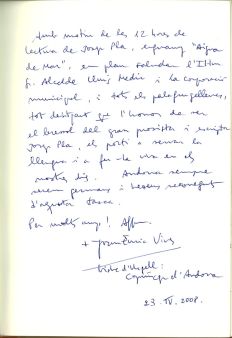 Amb motiu de les 12 hores de
lectura de Josep Pla, enguany "Aigua
de Mar", em plau saludar l'Il·lm
S. Alcalde Lluís Medir i la corporació
municipal, i tots els palafrugellencs,
tot desitjant que l'honor de ser
el bressol del gran prosista i escriptor
Josep Pla, els porti a servar la
llengua i a fer-la viva en els
nostres dies. Andorra sempre
serem germans i
d'aquesta tasca.
Per molts anys!
+ Joan Enric Vives
bisbe d'Urgell i
Copríncep d'Andorra
23. IV. 2008.